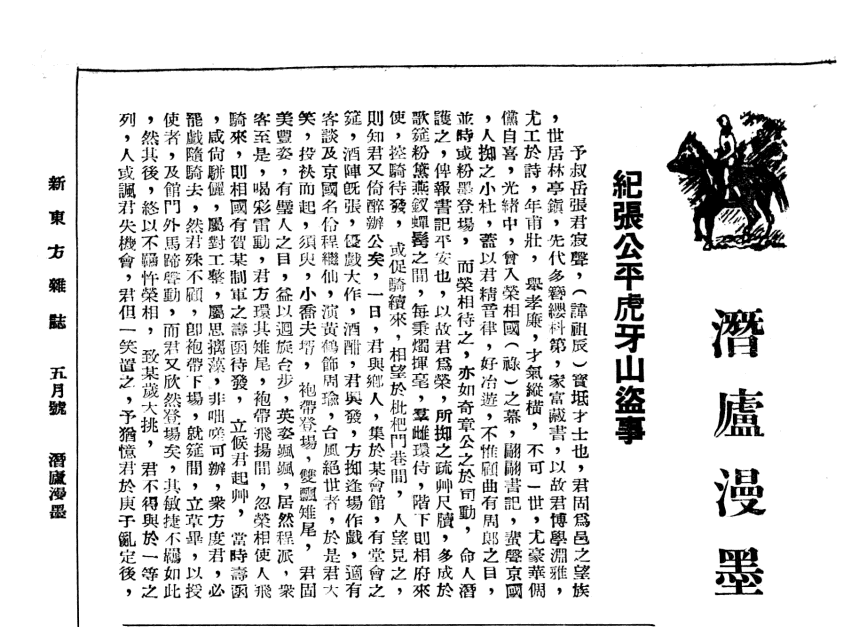 潛廬漫墨
紀張公平虎牙山盜事
予叔岳張君寂聲,(諱祖辰)寶坻才士也,君固爲邑之望族
,世居林亭鎮,先代多簪纓科第,家富藏書,以故君博學淵雅,
尤工於詩,年甫壯,舉孝廉,才氣縱橫,不可一世,尤豪華倜
儻自喜,光緒中,曾入榮相國(祿)之幕,翩翩書記,蜚聲京國
,人擬之小杜,蓋以君精音律,好冶遊,不惟顧曲有周郎之目,
並時或粉墨登場,而榮相待之,亦如奇章公之於司勳,命人潛
護之,俾報書記平安也,以故君爲榮,所擬之疏艸尺牘,多成於
歌筵粉黛燕釵蟬鬢之間,每秉燭揮毫,羣雌環侍,階下則相府來
使,控騎待發,或促騎續來,相望於枇杷門巷間,人望見之,
則知君又倚醉辦公矣,一日,君與鄉人,集於某會館,有堂會之
筵,酒陣旣張,優戲大作,酒酣,君興發,方擬逢場作戲,適有
客談及京國名伶程繼仙,演黃鶴飾周瑜,台風絕世者,於是君大
笑,投袂而起,須臾,小喬夫壻,袍帶登塲,雙飄雉尾,君固
美豐姿,有璧人之目,益以迴旋台步,英姿颯颯,居然程派,衆
客至是,喝彩雷動,君方環其雉尾,袍帶飛揚間,忽榮相使人飛
騎來,則相國有賀某制軍之壽函待發,立候君起艸,當時壽函
,咸尙駢儷,屬對工整,屬思摛藻,非咄嗟可辦,衆方度君,必
罷戲隨騎去,然君殊不顧,卽袍帶下場,就筵間,立草畢,以授
使者,及館門外馬蹄聲動,而君又欣然登場矣,其敏捷不羈如此
,然其後,終以不羈忤榮相,致某歲大挑,君不得與於一等之
列,人或諷君失機會,君但一笑置之,予猶憶君於庚子亂定後,
新東方雜誌 五月號 潛廬漫墨